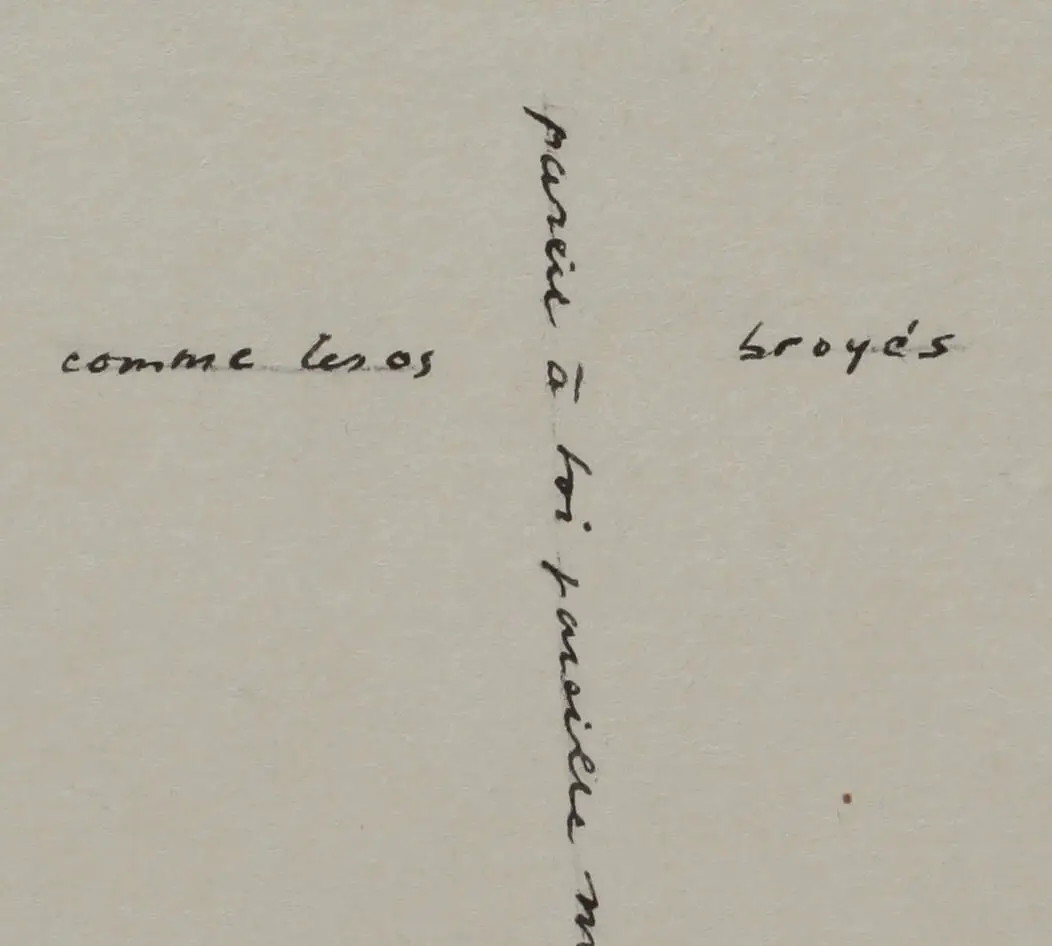 comme les os broyés
pareil à toi pareille